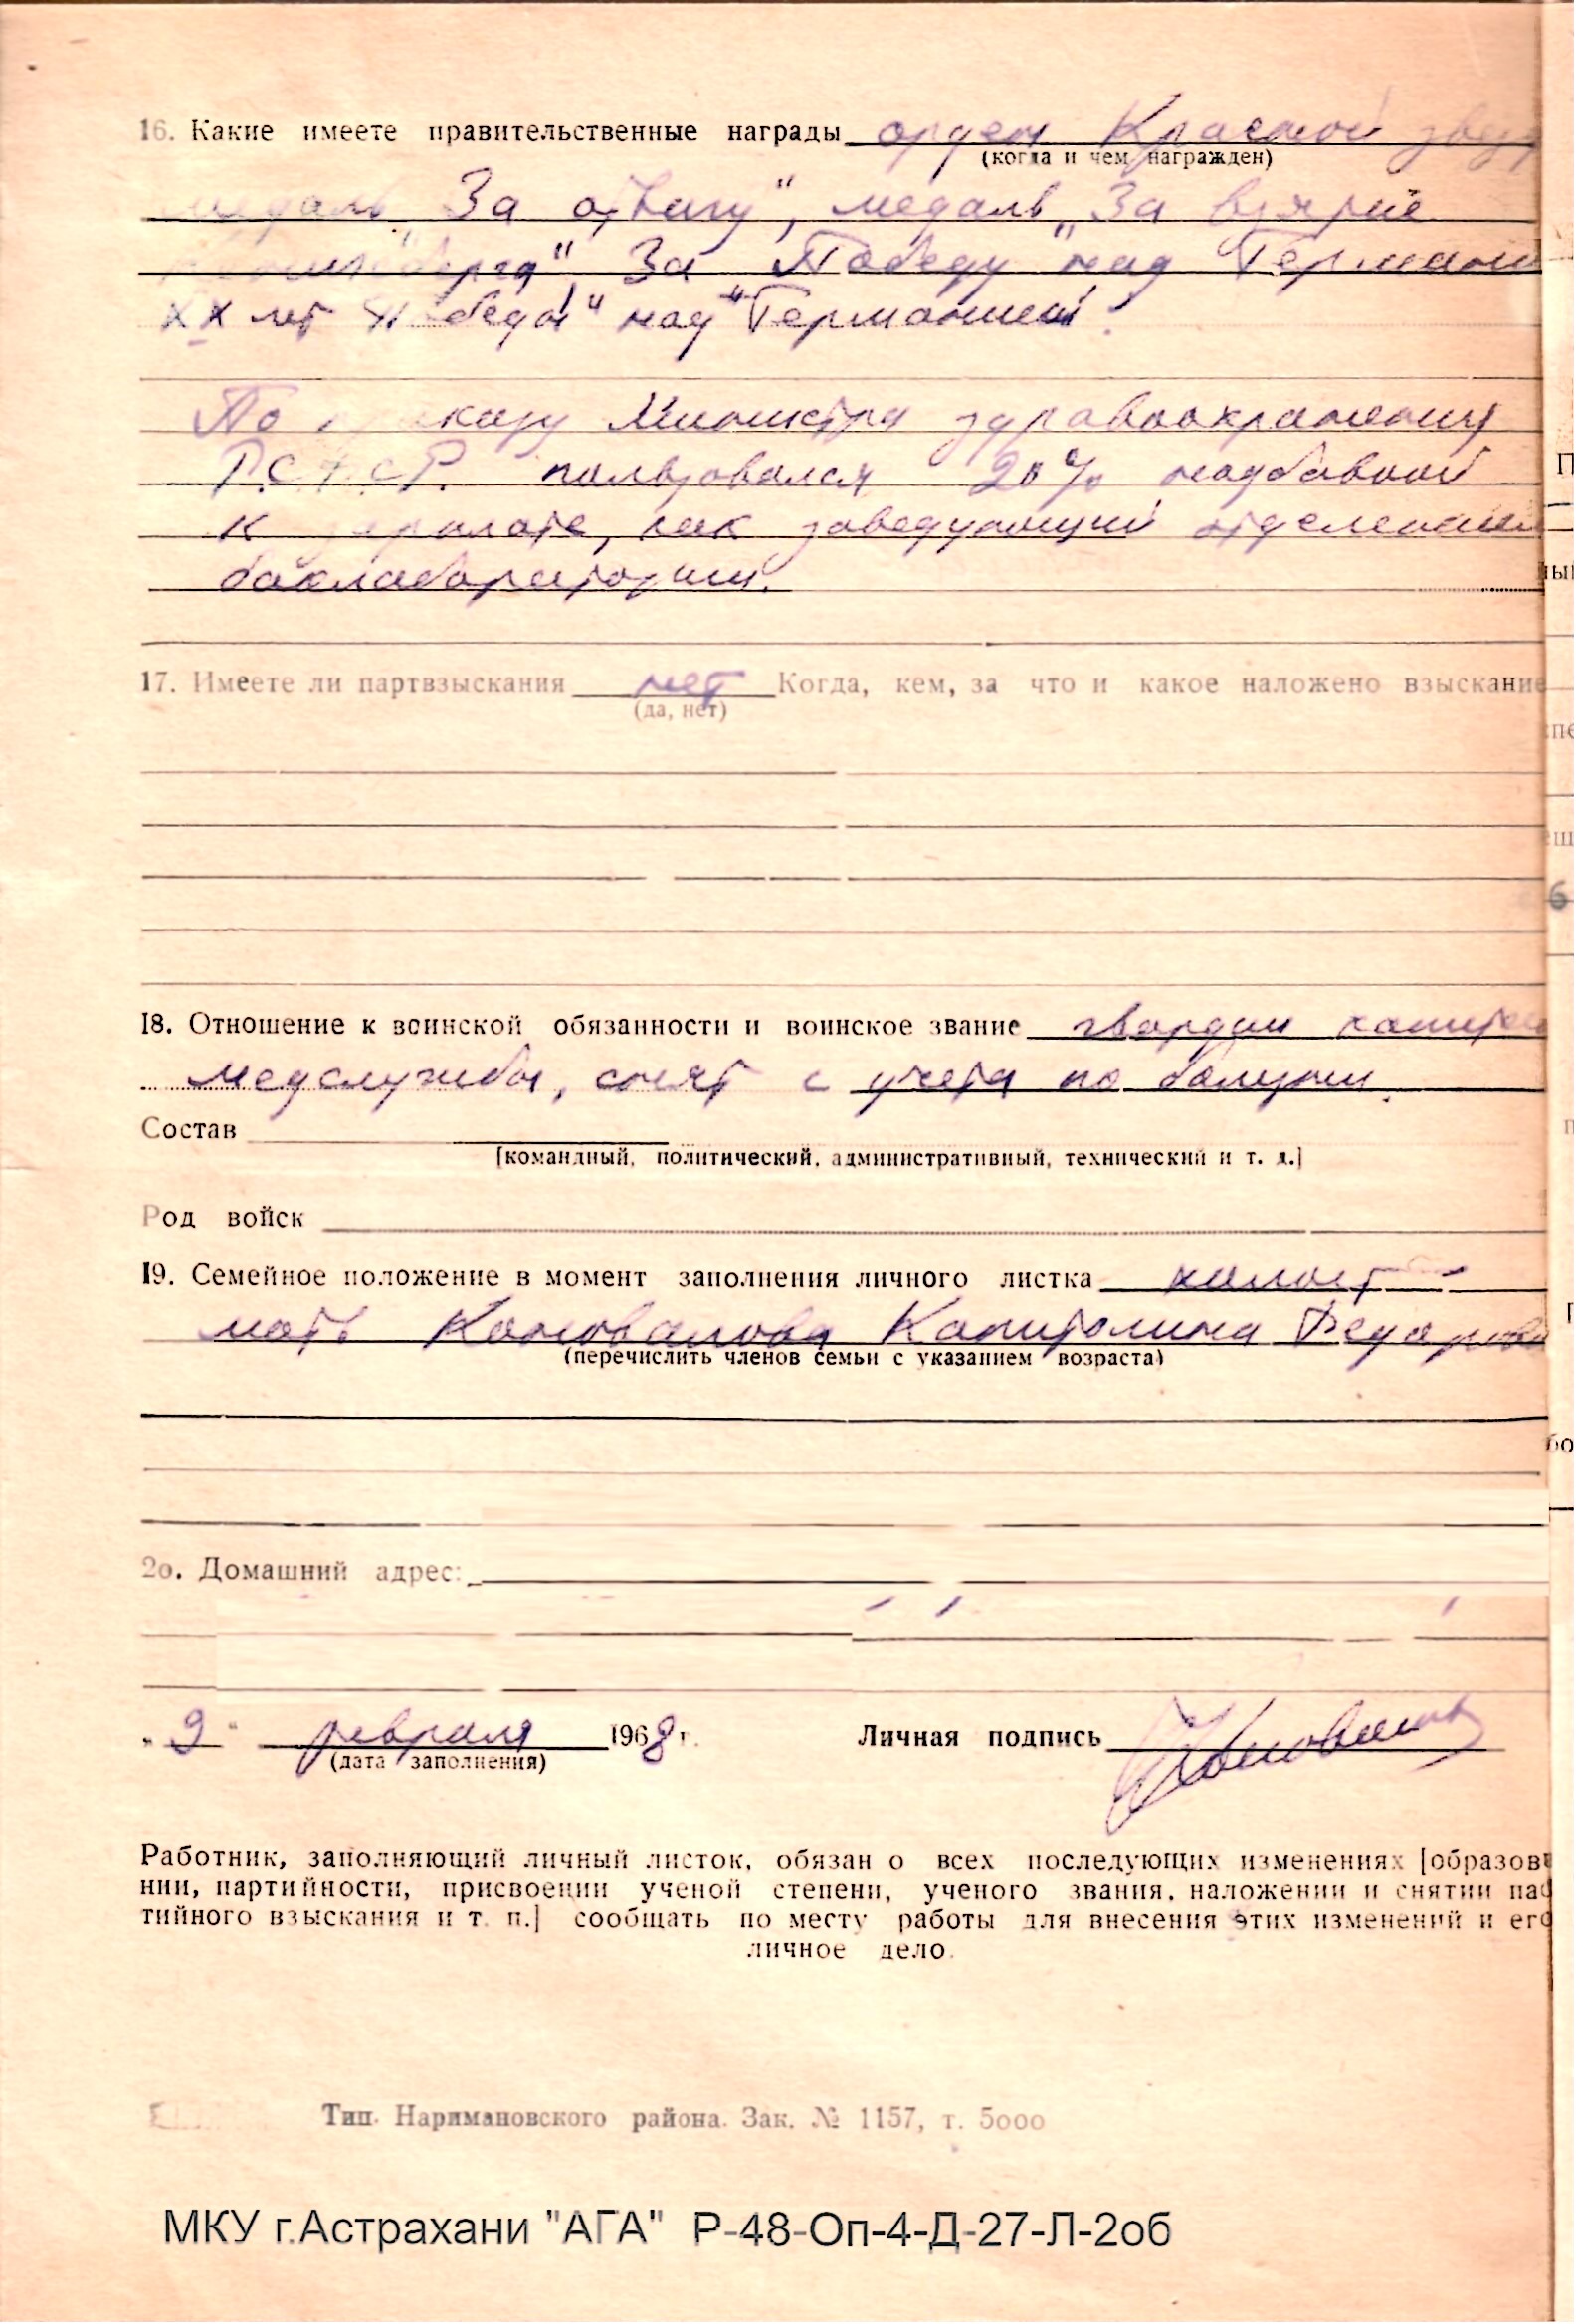 16. Какие имеете правительственные награды орден Красной
(когда и чем награжден)
медаль „За отвагу", медаль „За взятие
За Победу над Германи
ХХ лет Победы" над Германией.
По приказу Министра здравоохранения
Р.С.Ф.С.Р. пользовался 20% надбавкой
к зарплате, как заведующий отделением
баклаборатории.
17. Имеете ли партвзыскания нет Когда, кем, за что и какое наложено взыскание
(да, нет)
18. Отношение к воинской обязанности и воинское звание гвардии капитан
медслужбы, снят с учета по болезни.
Состав
[командный, политический, административный, технический и т. д.]
Род войск
19. Семейное положение в момент заполнения личного листка холост -
мать Коновалова Капитолина Федоровна
(перечислить членов семьи с указанием возраста)
2о. Домашний адрес:
„9" февраля 1968 г. Личная подпись Коновалов
(дата заполнения)
Работник, заполняющий личный листок, обязан о всех последующих изменениях [образова
нии, партийности, присвоении ученой степени, ученого звания, наложении и снятии пар
тийного взыскания и т. п.] сообщать по месту работы для внесения этих изменений и его
личное дело.
Тип. Наримановского района. Зак. № 1157, т. 5000
МКУ г.Астрахани "АГА" Р-48-Оп-4-Д-27-Л-2об